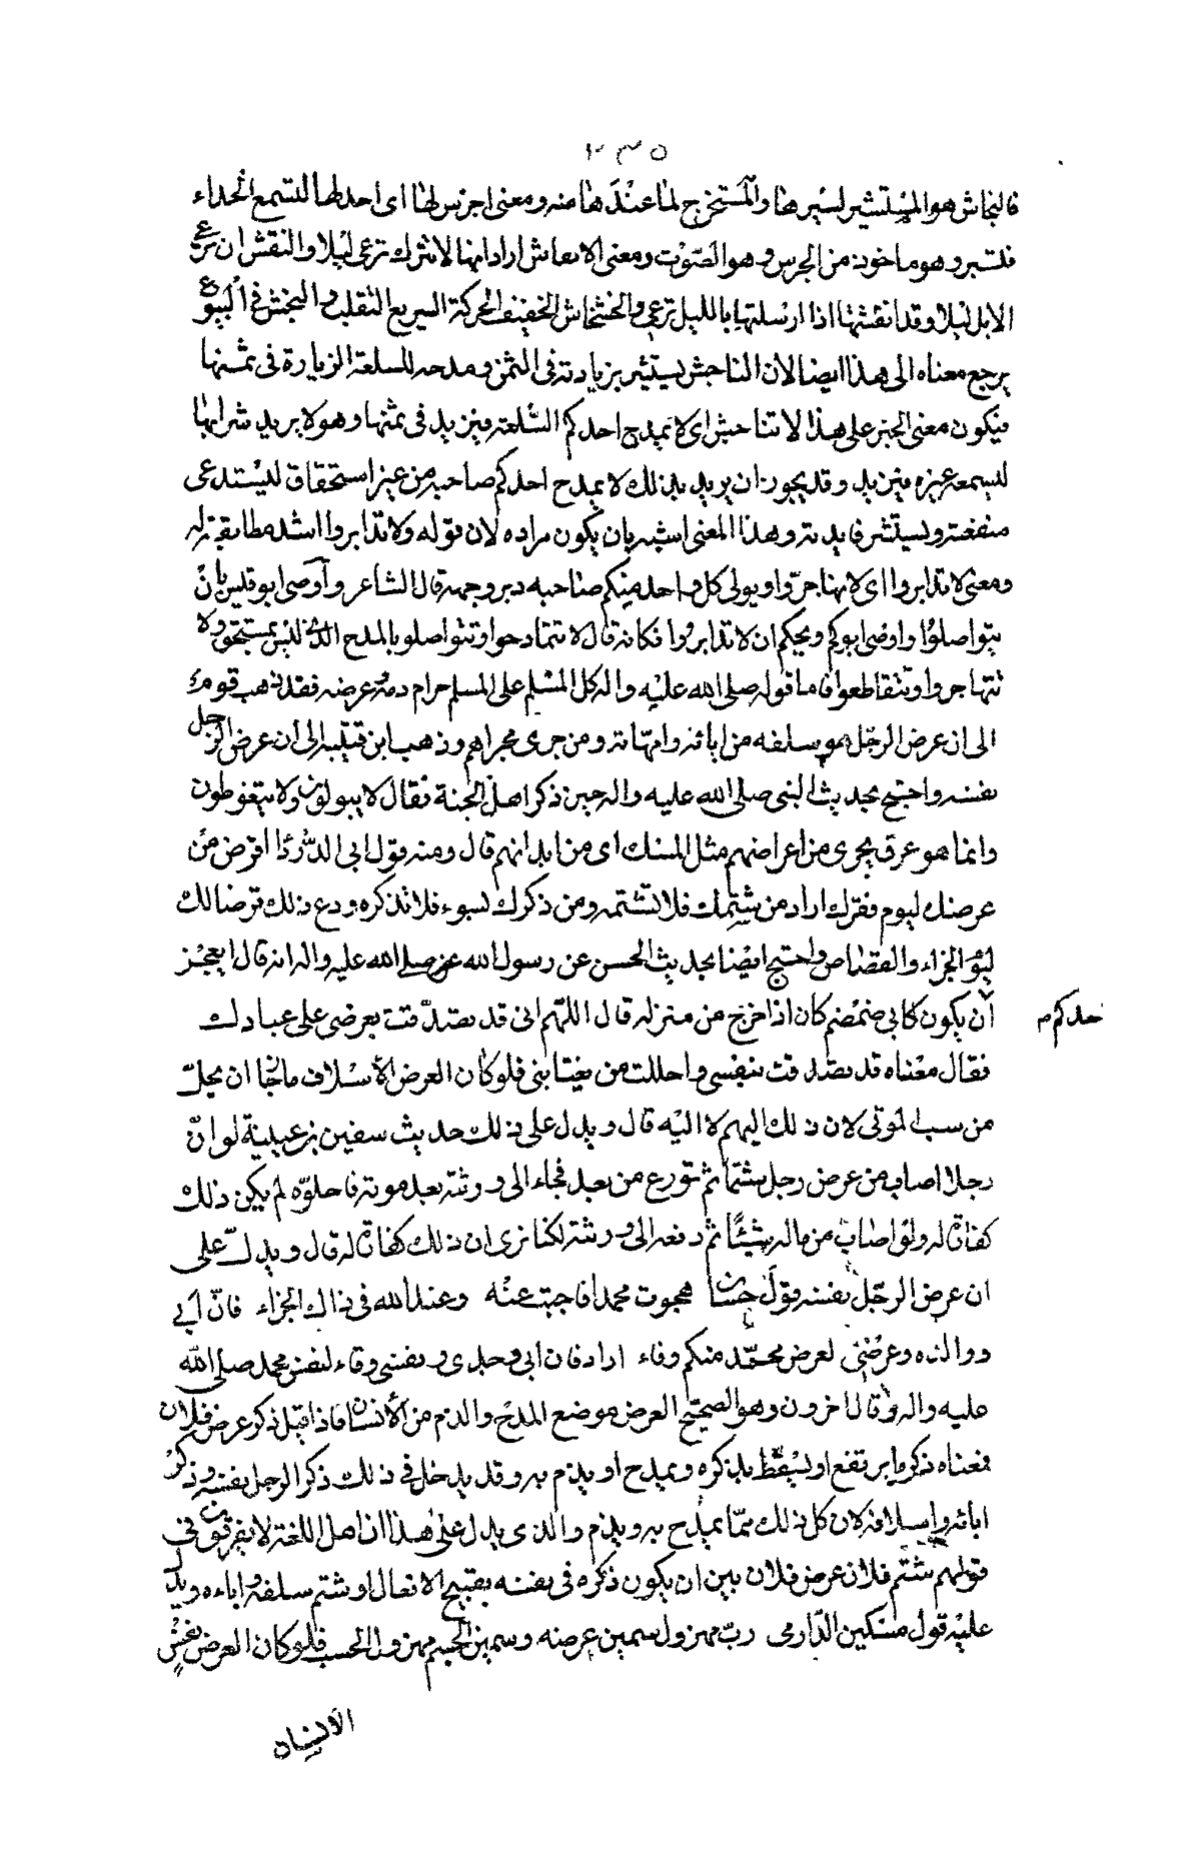 ٢٣٥
فالنجاش هو المستثير لسيرها والمستخرج لما عندها منه ومعنى اجرس لها اى احد لها لتسمع الحداء
فتسير وهو ماخوذ من الجرس وهو الصوت ومعنى الانفاش اراد انها لا تترك ترعى ليلا والنفش ان ترعى
الابل ليلا وقد انفشتها اذا ارسلتها بالليل ترعى والخشخاش الخفيف الحركة السريع التقلب والنجش فى البيوع
يرجع معناه الى هذا ايضا لان الناجش يستثير بزيادته فى الثمن ومدحه للسلعة الزيارة فى ثمنها
فيكون معنى الخبر على هذا لا تناجشوا اى لا يمدح احدكم السلعة فيزيد فى ثمنها وهو لا يريد شراءها
ليسمعه غيره فيزيد وقد يجوز ان يريد بذلك لا يمدح احدكم صاحبه من غير استحقاق ليستدعى
منفعته ويستثير فايدته وهذا المعنى اشبه بان يكون مراده لان قوله ولا تدابروا اشد مطابقة له
ومعنى لا تدابروا اى لا تهاجروا ويولى كل واحد منكم صاحبه دبر وجهه قال الشاعر وأوصى ابو قيس بان
تتواصلوا واوصى ابوكم ويحكم ان لا تدابروا فكانه قال لا تتمادحوا وتتواصلو بالمدح الذى ليس بمستحق ولا
تتهاجروا وتتقاطعوا فاما قوله صلى الله عليه واله كل المسلم على المسلم حرام دمه وعرضه فقد ذهب قوم
الى ان عرض الرجل هو سلفه من ابائه وامهاته ومن جرى مجراهم وذهب ابن قتيبة الى ان عرض الرجل
نفسه واحتج بحديث النبى صلى الله عليه واله حين ذكر اهل الجنة فقال لا يبولون ولا يتغوطون
وانما هو عرق يجرى من اعراضهم مثل المسك اى من ابدانهم قال ومنه قول ابى الدرداء اقرض من
عرضك ليوم فقرك اراد من شتمك فلا تشتمه ومن ذكرك بسوء فلا تذكره ودع ذلك قرضا لك
ليوم الجزاء والقصاص واحتج ايضا بحديث الحسن عن رسول الله عن صلى الله عليه واله انه قال ايعجز
أن يكون كابى ضمضم كان اذا خرج من منزله قال اللهم انى قد تصدقت بعرضى على عبادك
حدكم
فقال معناه قد تصدقت بنفسى واحللت من يغتابنى فلو كان العرض الأسلاف ما جاز ان يحل
من سب الموتى لان ذلك اليهم لا اليه قال ويدل على ذلك حديث سفين بن عيينة لو ان
رجلا اصاب من عرض رجل شتما ثم تورع من بعد فجاء الى ورثته بعد موته فاحلوه لم يكن ذلك
كفارة له ولو اصاب من ماله شيئا ثم دفعه الى ورثته لكنا نرى ان ذلك كفارة له قال ويدل على
ان عرض الرجل نفسه قول حسان هجوت محمدا فاجبت عنه وعند الله فى ذاك الجزاء فان ابى
ووالده وعرضى لعرض محمد منكم وقاء اراد فان ابى وجدى ونفسى وقاء لنفس محمد صلى الله
عليه واله وقال اخرون وهو الصحيح العرض موضع المدح والذم من الأنسان فاذا قيل ذكر عرض فلان
فمعناه ذكر ما يرتفع او يسقط بذكره ويمدح او يذم به وقد يدخل فى ذلك ذكر الرجل نفسه وذكر
ابائه واسلافه لان كل ذلك مما يمدح به ويذم والذى يدل على هذا ان اهل اللغة لا يفرقون فى
قولهم شتم فلان عرض فلان بين ان يكون ذكره فى نفسه بقبيح الافعال او شتم سلفه واباءه ويدل
عليه قول مسكين الدارمى رب مهزول سمين عرضه وسمين الجسم مهزول الحسب فلو كان العرض نفس
الانسان